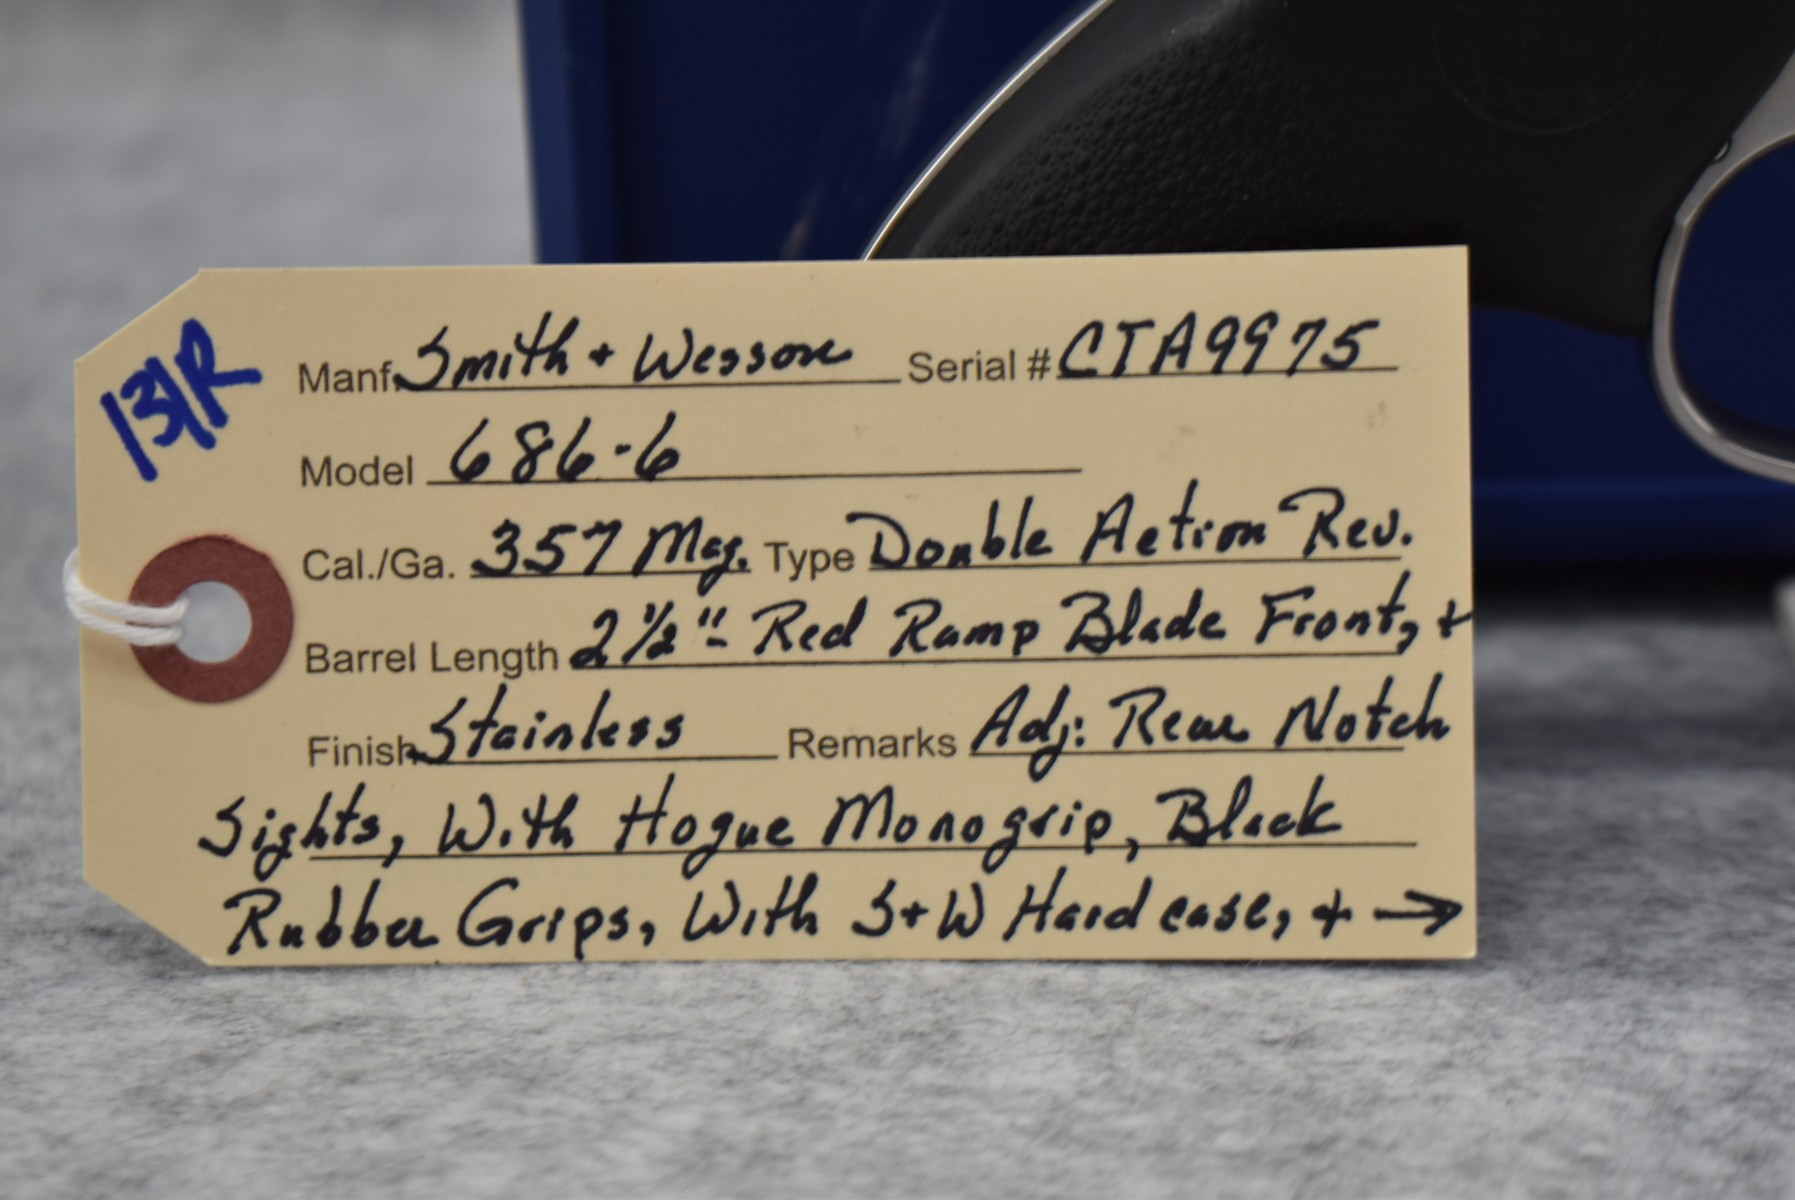 13/R
Manf. Smith + Wesson Serial # CTA9975
Model 686-6
Cal./Ga. 357 Mag. Type Double Action Rev.
Barrel Length 2 1/2" - Red Ramp Blade Front, +
Finish Stainless Remarks Adj: Rear Notch
Sights, With Hogue Monogrip, Black
Rubber Grips, With S+W Hard case, + →